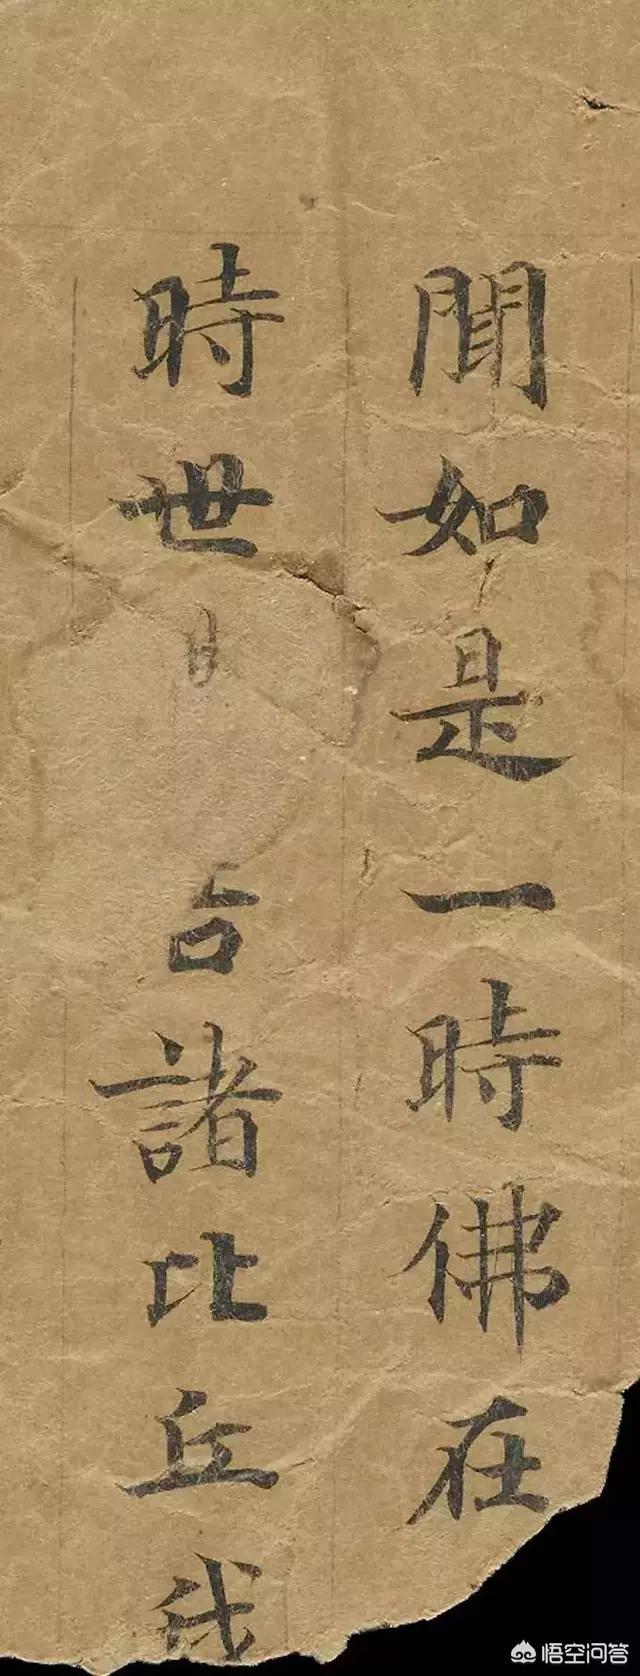 聞如是一時佛在
時世告諸比丘我
悟空问答